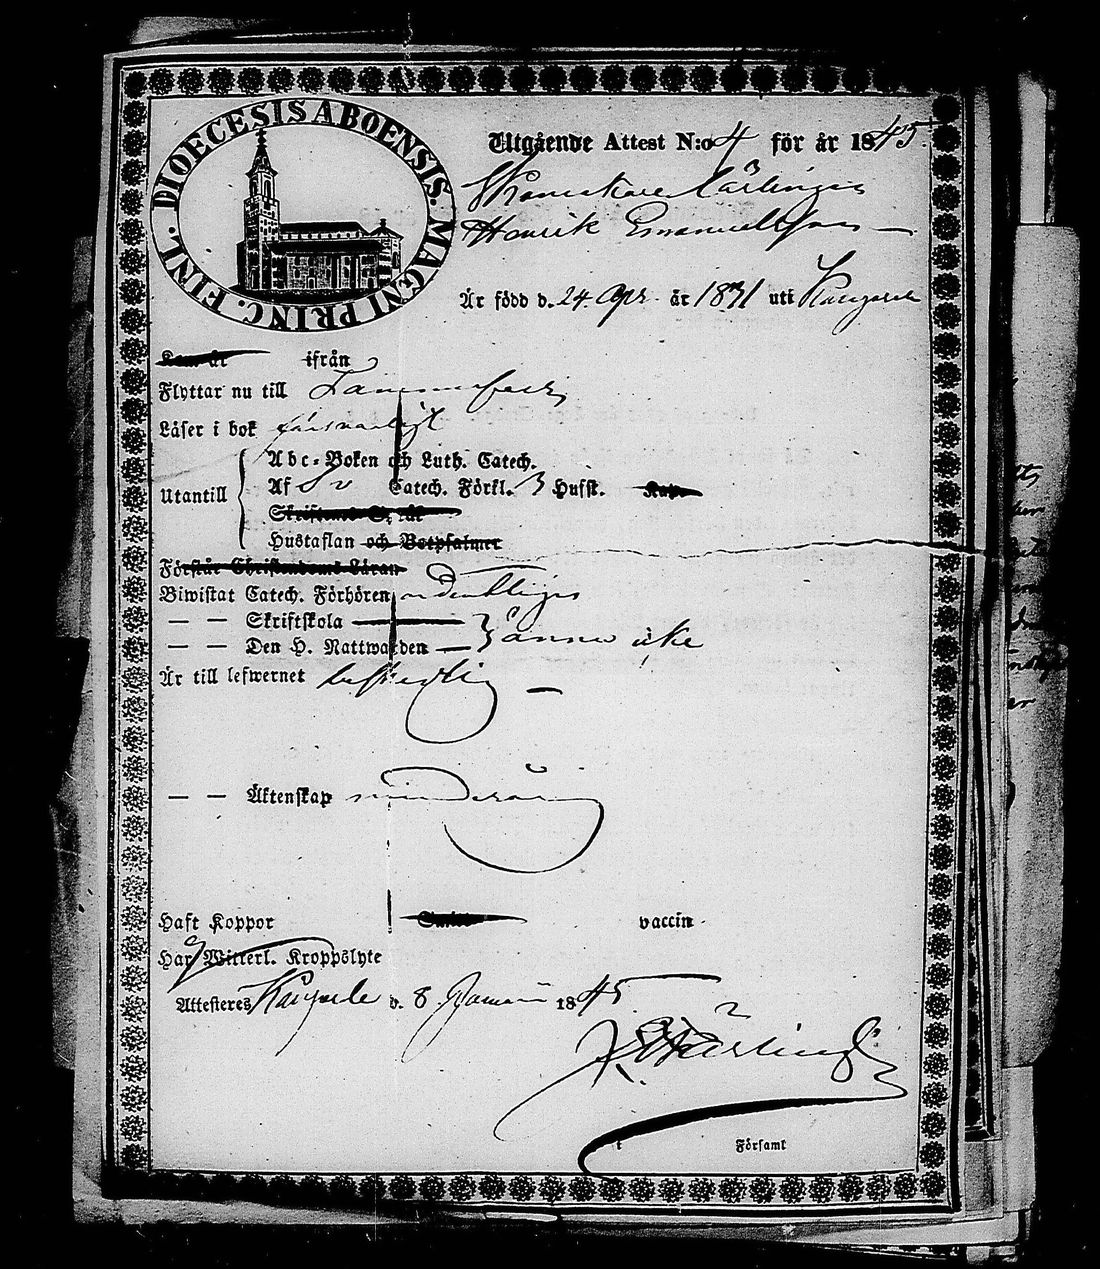 DIOECESIS ABOENSIS. MAGNI PRINC. FINL.
Utgående Attest N:o 4 för år 1845.
Skomakare Lärlingen
Henrik Emanuelsson —
Är född d. 24 Apr. år 1831 uti Kangasala
Kom år ifrån
Flyttar nu till Tammerfors
Läser i bok försvarligt
Abc-Boken och Luth. Catech.
Utantill Af Sv Catech. Förkl. 3 Hufst. Kap.
Skriftens Språk
Hustaflan och Botpsalmer
Förstår Christendoms Läran
Biwistat Catech. Förhören ordentligen
— — Skriftskola
— — Den H. Nattwarden — ännu icke
Är till lefwernet beskedlig —
— — Äktenskap minderårig
Haft Koppor Smitt vaccin
Har Witterl. Kroppslyte
Attesteres Kangasala d. 8 Januari 1845
Församl